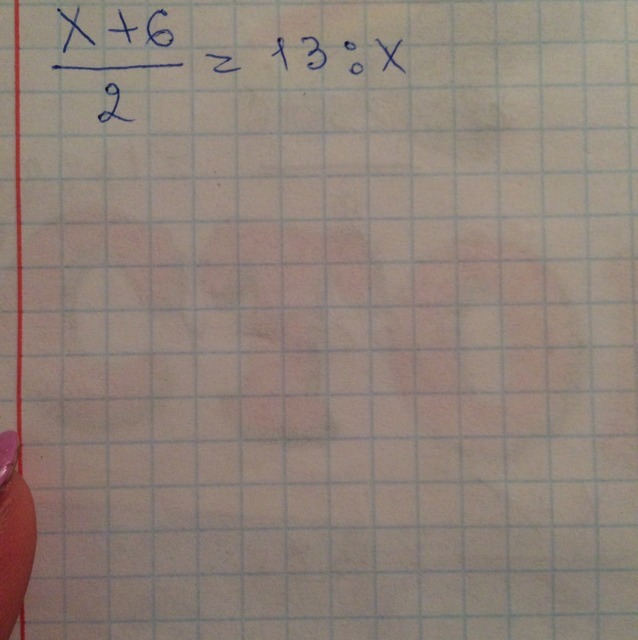 x+6
2
= 13:x